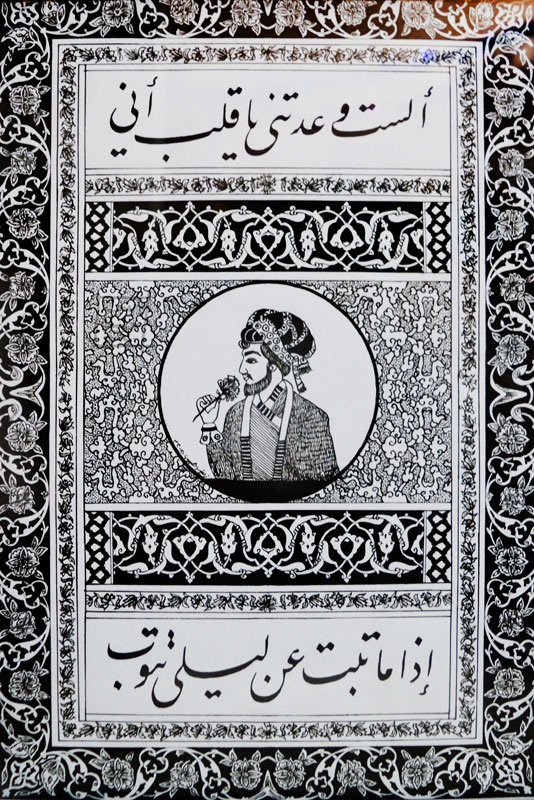 ألست وعدتني يا قلب أني
إذا ما تبت عن ليلى تتوب